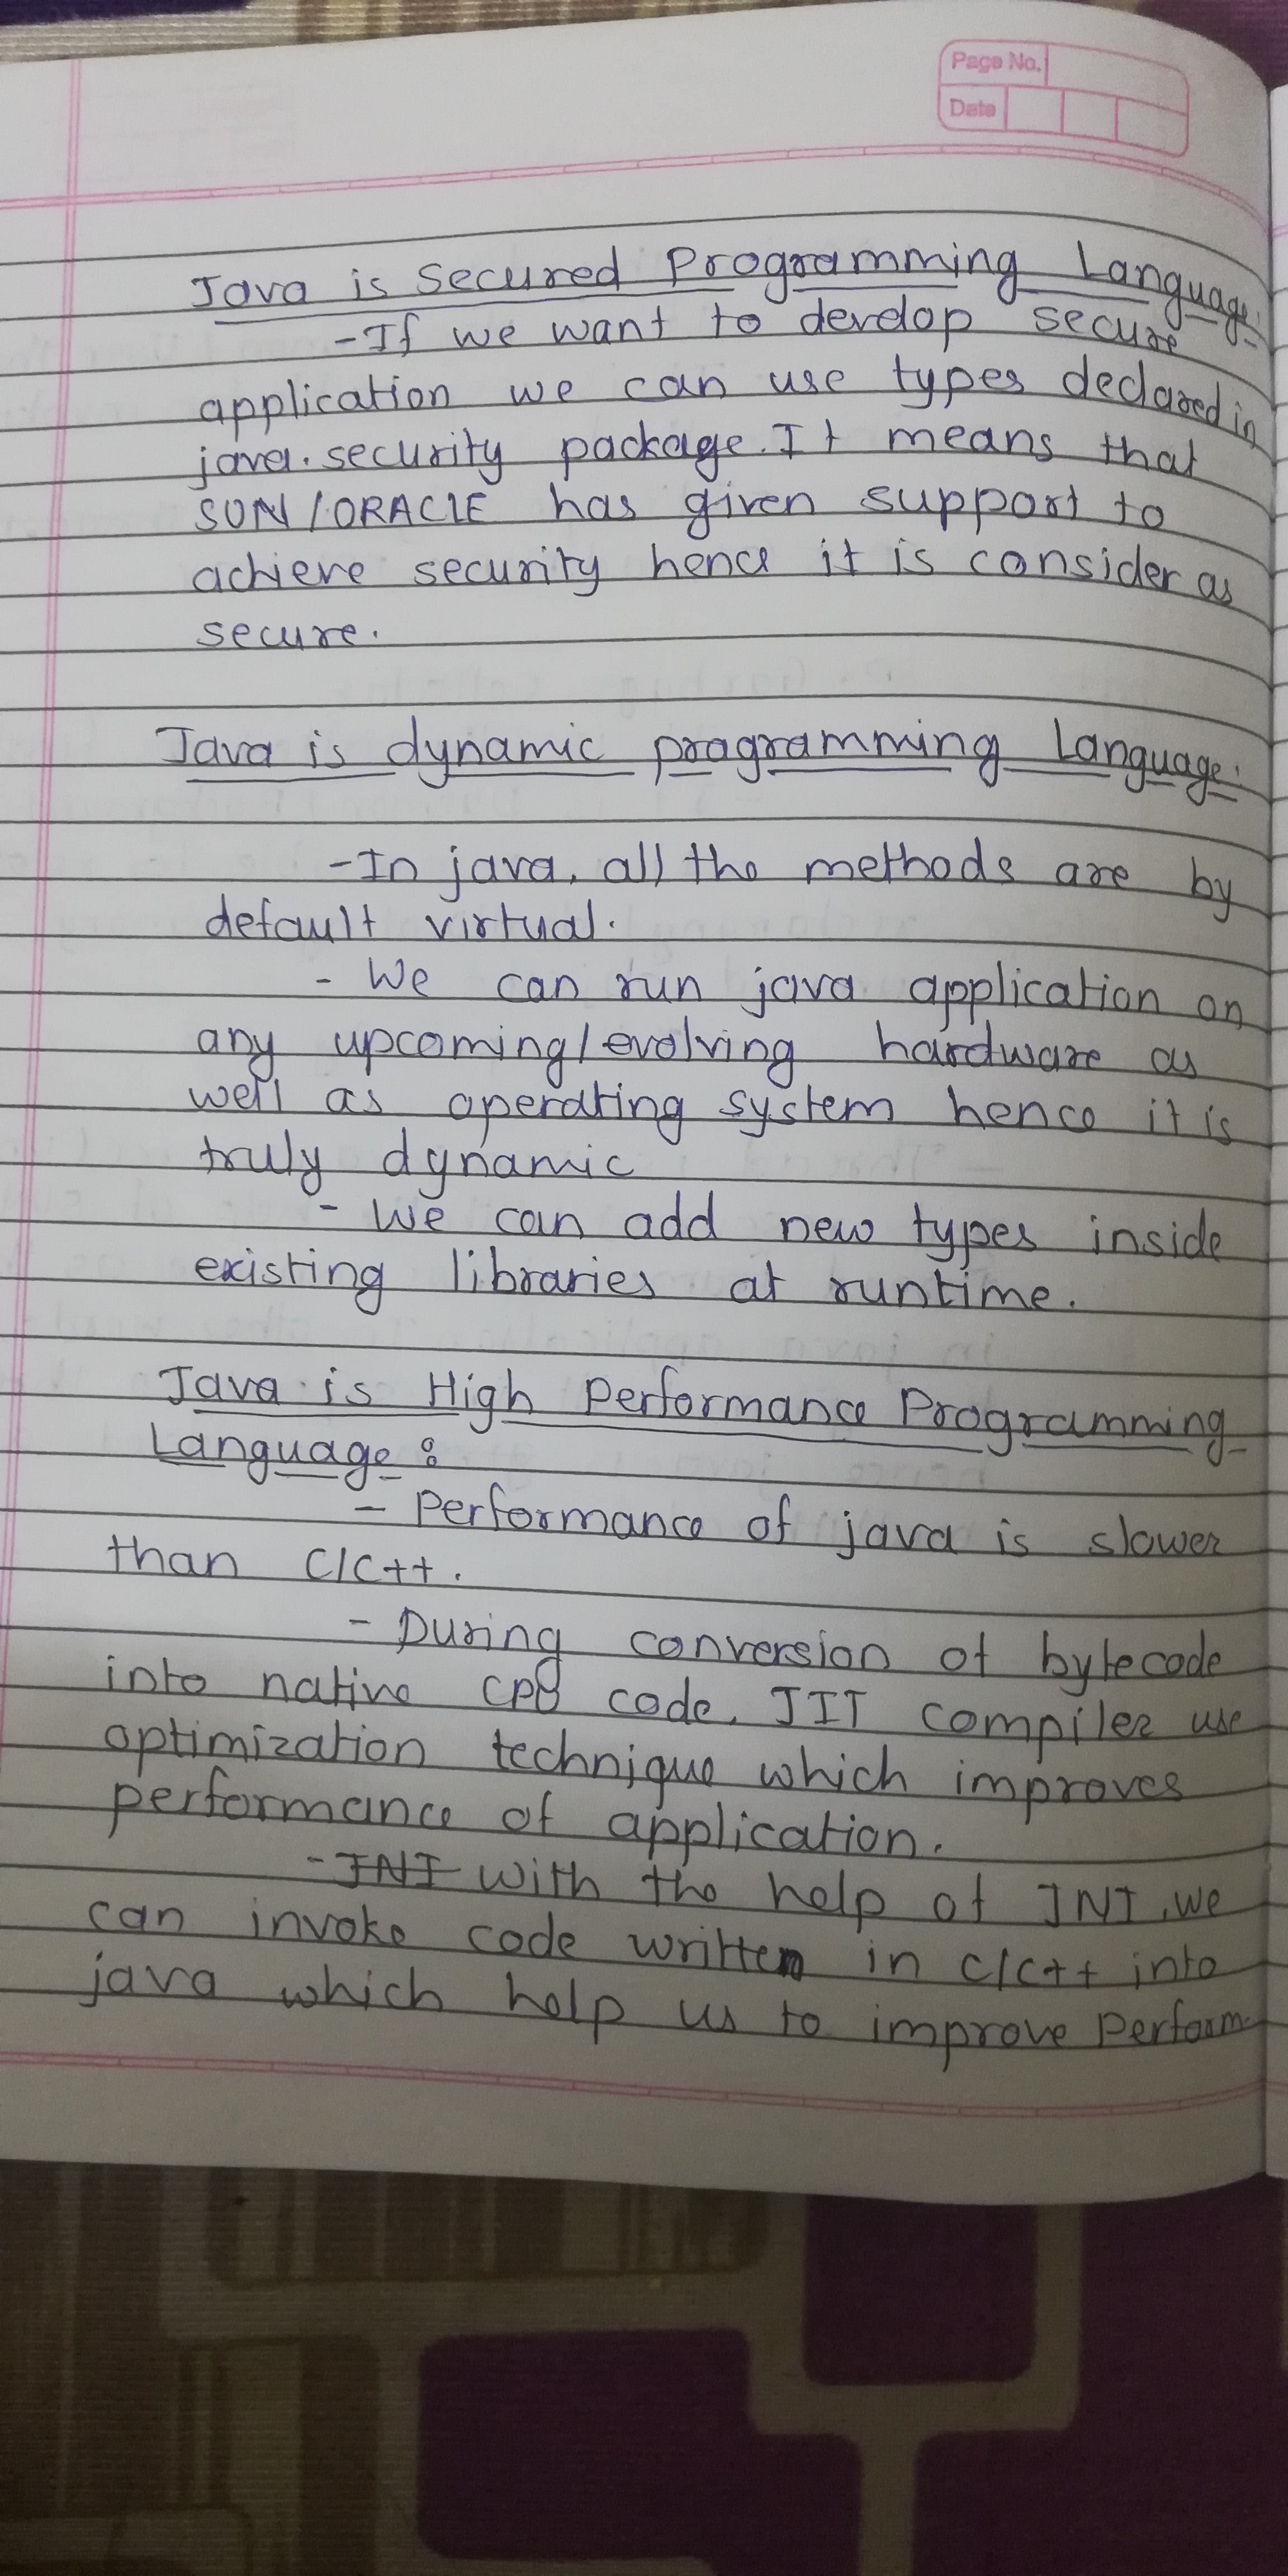 Page No.
Date
Java is Secured Programming Language:
-If we want to develop secure
application we can use types declared in
java.security package. It means that
SUN/ORACLE has given support to
achieve security hence it is consider as
secure.
Java is dynamic programming Language:
-In java, all the methods are by
default virtual.
- We can run java application on
any upcoming/evolving hardware as
well as operating system hence it is
truly dynamic
- We can add new types inside
existing libraries at runtime.
Java is High Performance Programming
Language:
- Performance of java is slower
than C/C++.
- During conversion of bytecode
into native CPU code, JIT compiler use
optimization technique which improves
performance of application.
- JNI With the help of JNI, we
can invoke code written in C/C++ into
java which help us to improve Perform